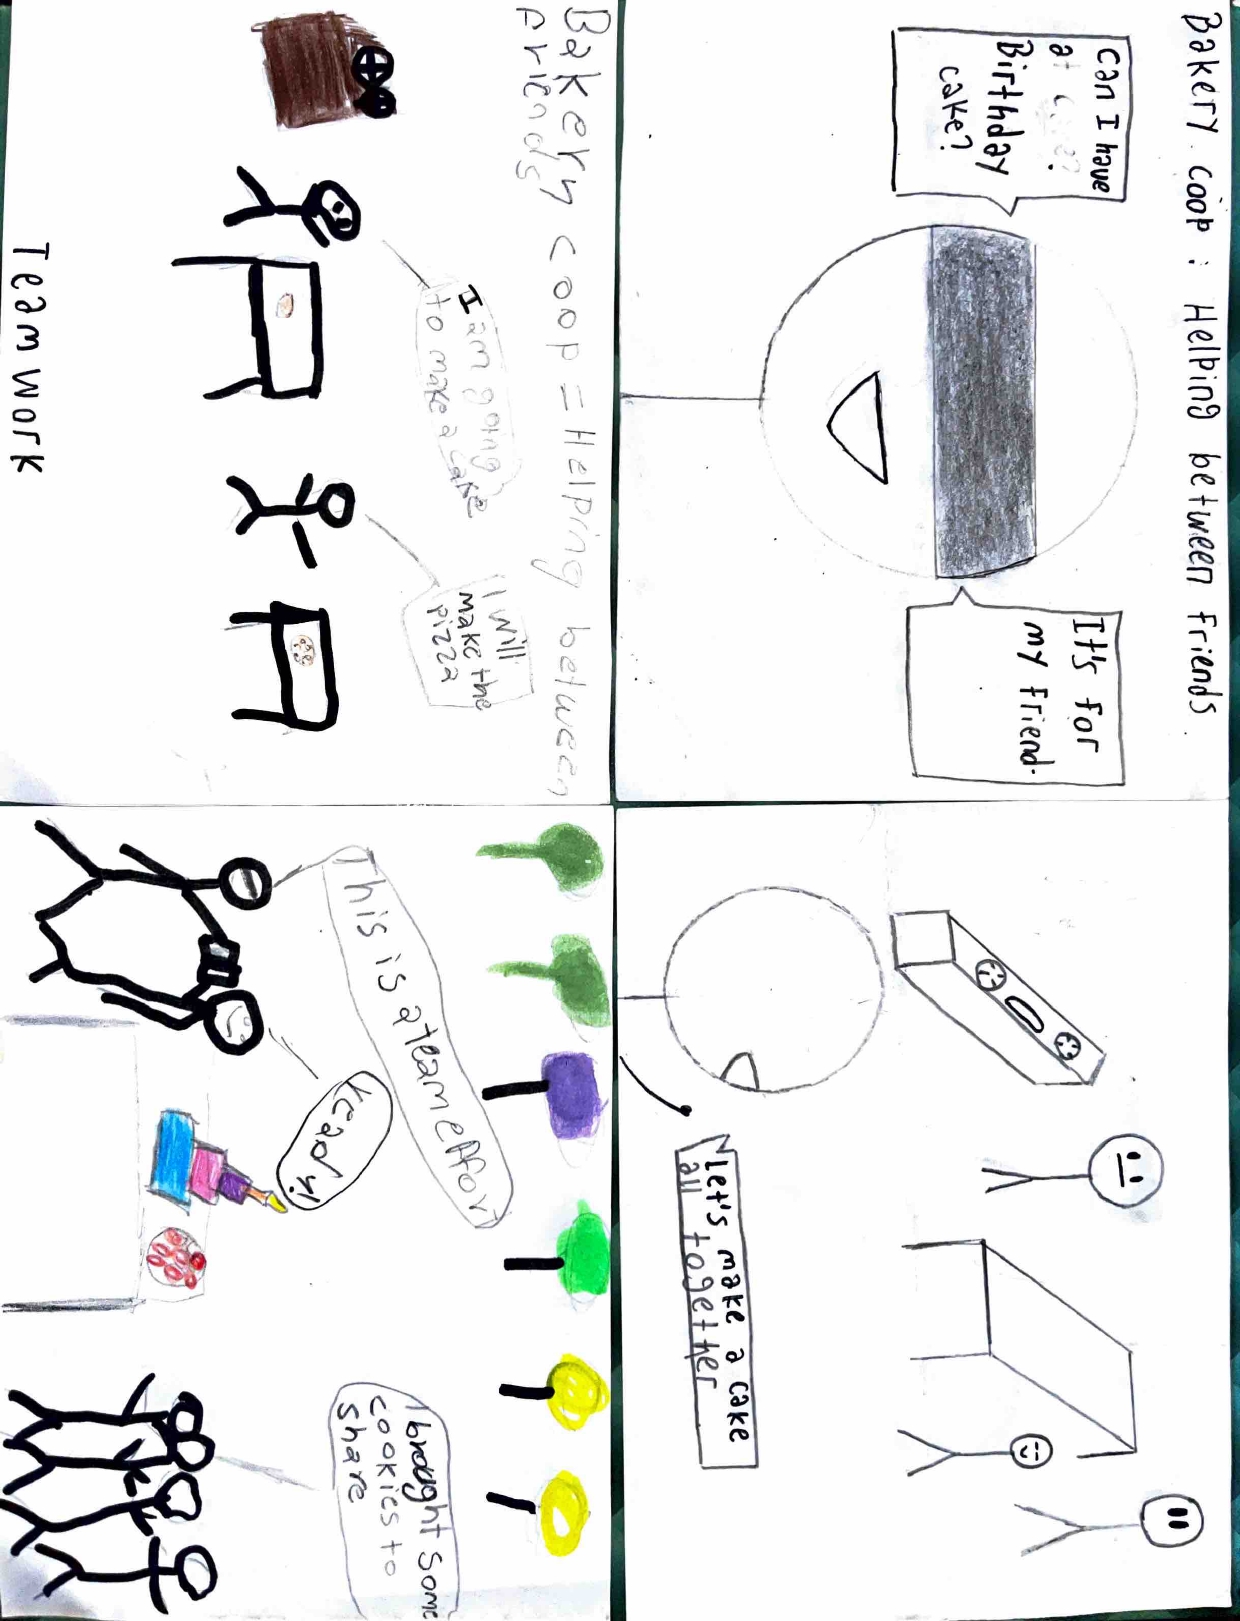 Bakery coop: Helping between Friends.
Can I have
a
Birthday
cake?
It's for
my Friend.
Let's make a cake
all together
Bakery coop = Helping between
friends
I am going
to make a cake
I will
make the
pizza
Team work
This is a team effort
ready!
I brought some
cookies to
share